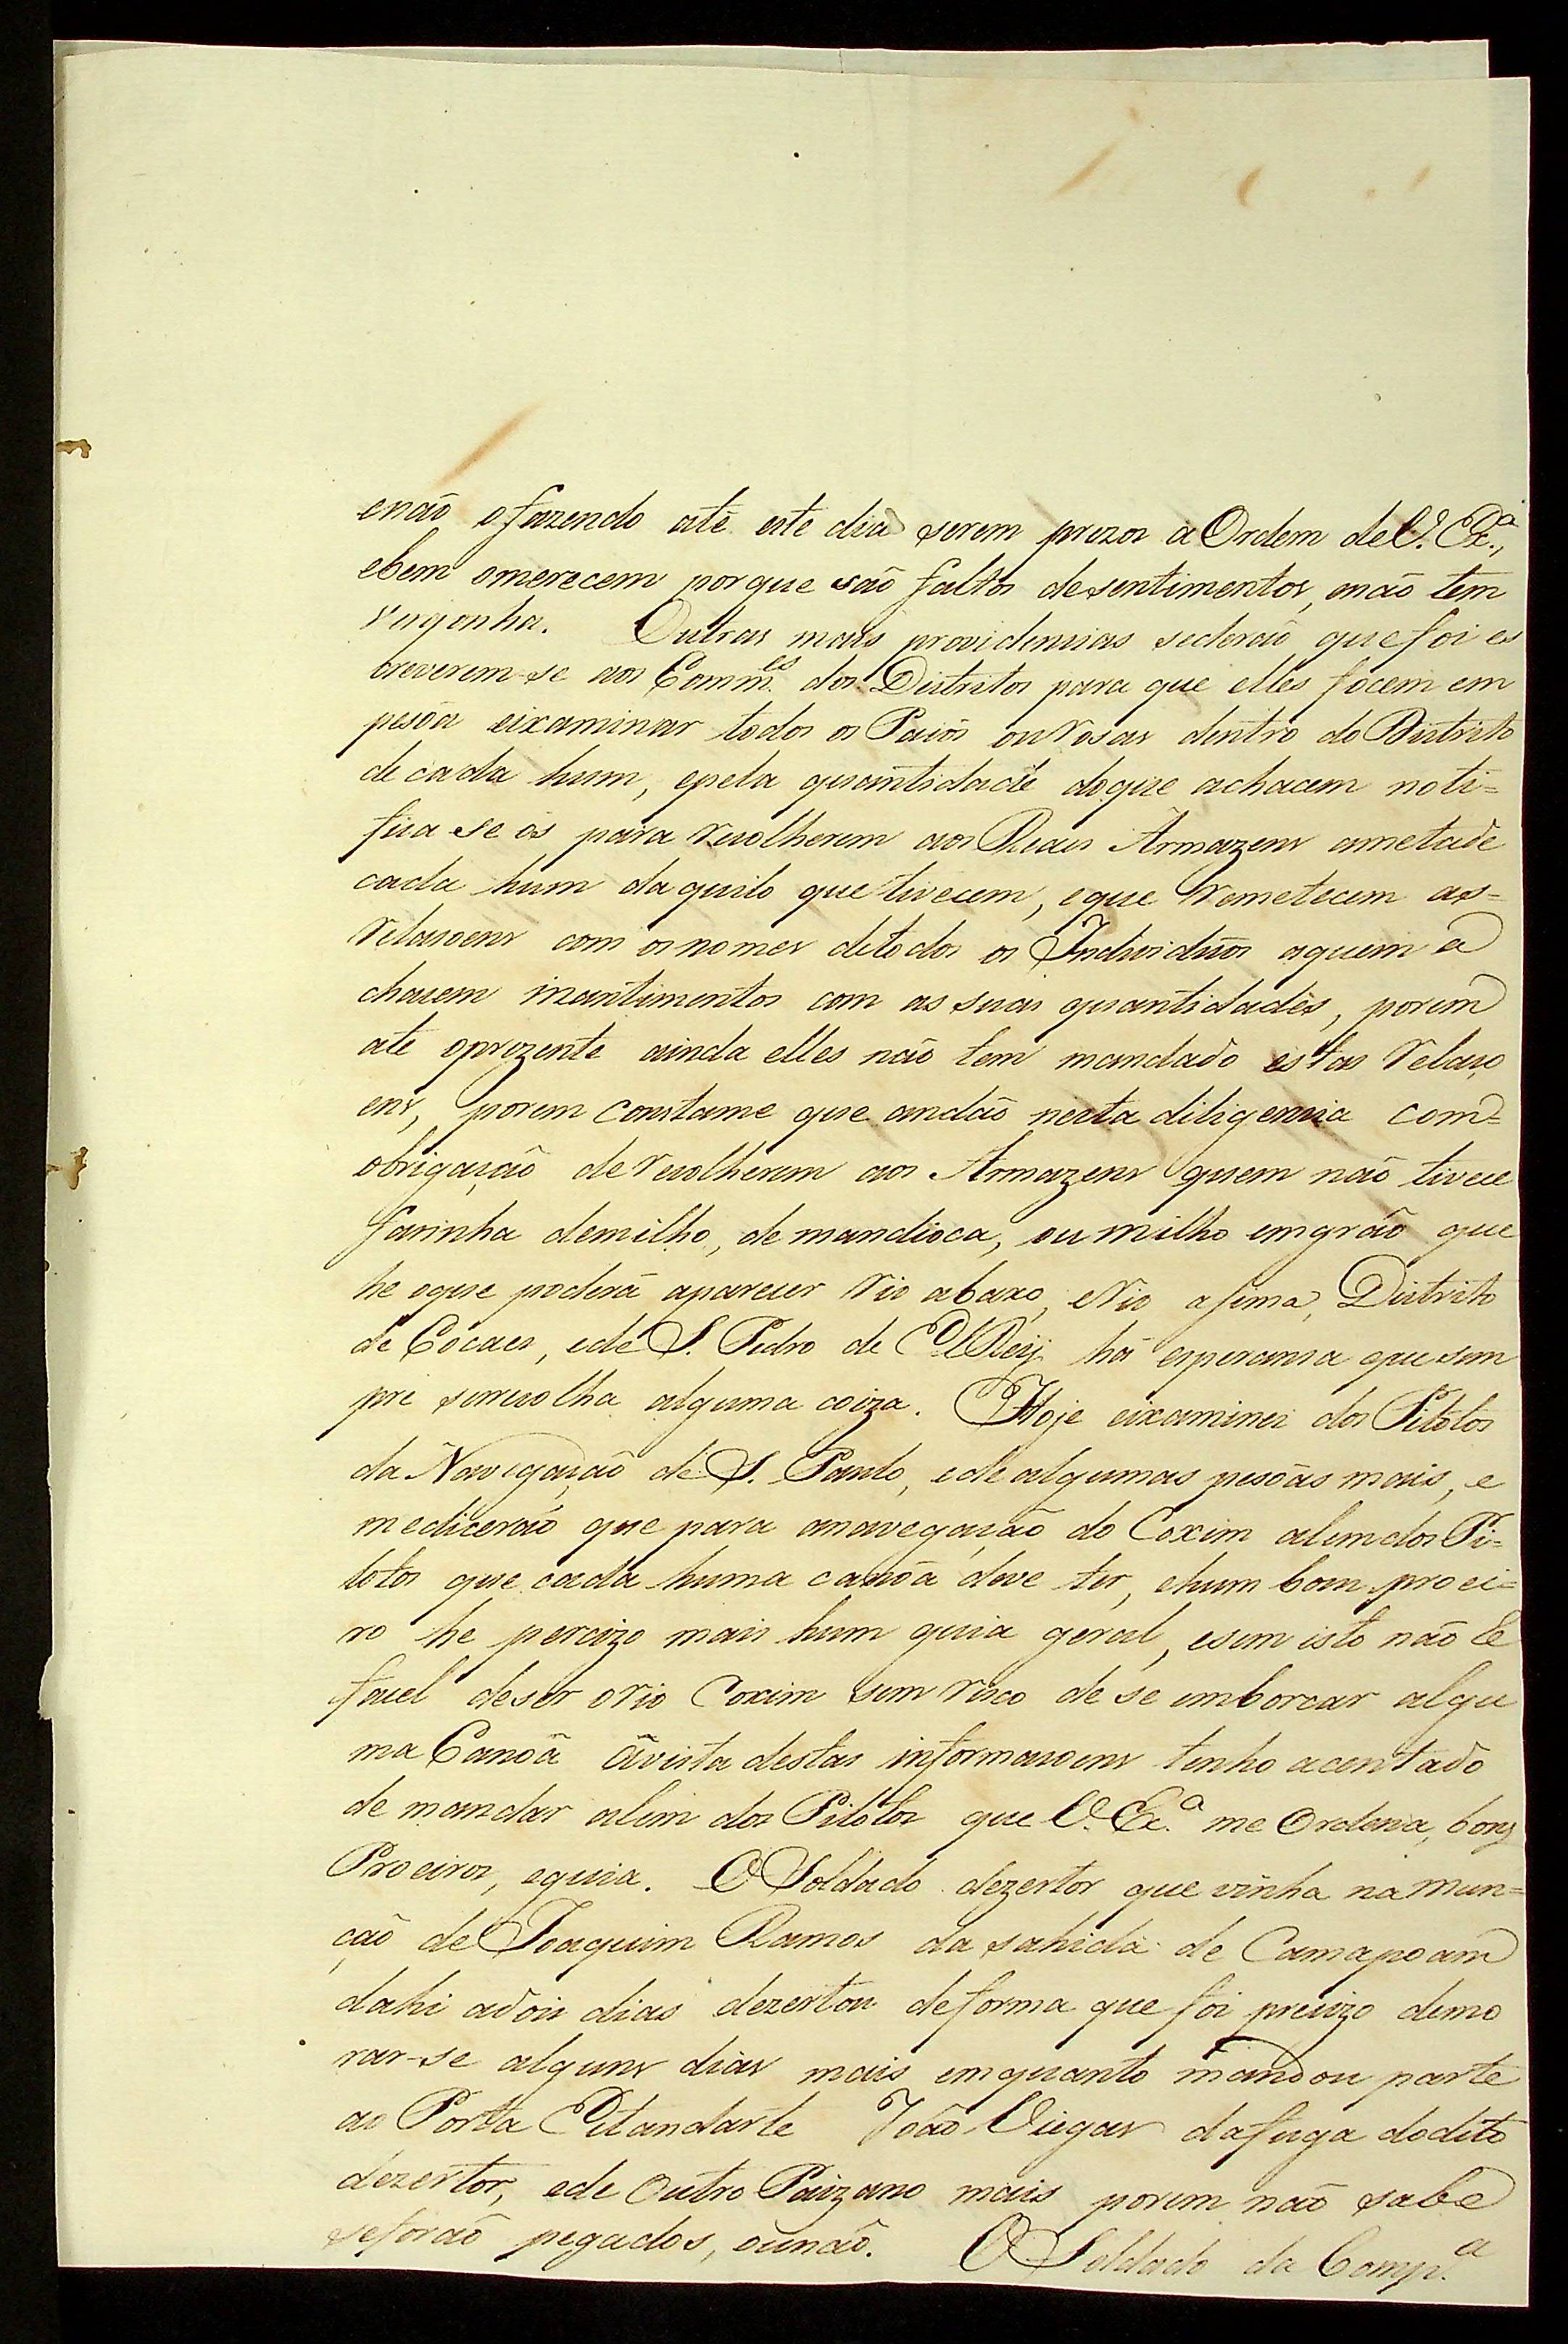 enaõ o fazendo até este dia serem prezos a Ordem deV. Ex.ª,
ebem omerecem porque saõ faltos desentimentos, enaõ tem
vergonha. Outras mais providencias sederaõ que foi es
creverem-se aos Comm.es dos Distritos para que elles focem em
pesôa eixaminar todos os Paiós ou rosas dentro do Distrito
de cada hum, epela quantidade doque achacem noti=
fica-se ós para recolherem aos Reaes Armazens ametade
cada hum daquilo que tivecem, eque remetecem as=
relasoens com os nomes detodos os Individuos aquem a
chacem mantimentos com as suas quantidades, porem
até oprezente ainda elles não tem mandado estas relaço
ens, porem constame que andaõ nesta diligencia com=
obrigaçaõ de recolherem aos Armazens quem naõ tivece
farinha demilho, de mandioca, ou milho emgrão que
he oque poderá aparecer rio abaxo, erio asima, Distrito
de Cócaes, ede S. Pedro de ElReÿ há esperansa que sem
pre serecolha alguma coiza. Hoje eixaminei dos Pilotos
da Navegaçaõ de S. Paulo, ede algumas pesôas mais, e
mediceraõ que para anavegaçaõ do Coxim alemdos Pi=
lotos que cada huma canôa deve ter, ehum bom proei=
ro he percizo mais hum guia geral, esem isto naõ é
facel deser orio Coxim sem risco de se emborcar algu
ma Canôa ávista destas informasoens tenho acentado
de mandar alem dos Pilotos que V. Ex.ª me Ordena, bons
Proeiros, eguia. O Soldado dezertor que vinha na Mun=
ção de Joaquim Ramos da sahida de Camapoam
dahi adois dias dezertou deforma que foi precizo demo
rar-se alguns dias mais emquanto mandou parte
ao Porta Estandarte João Viegas dafuga dodito
dezertor, ede outro Paizano mais porem naõ sabe
seforaõ pegados, ounaõ. O Soldado da Comp.ª